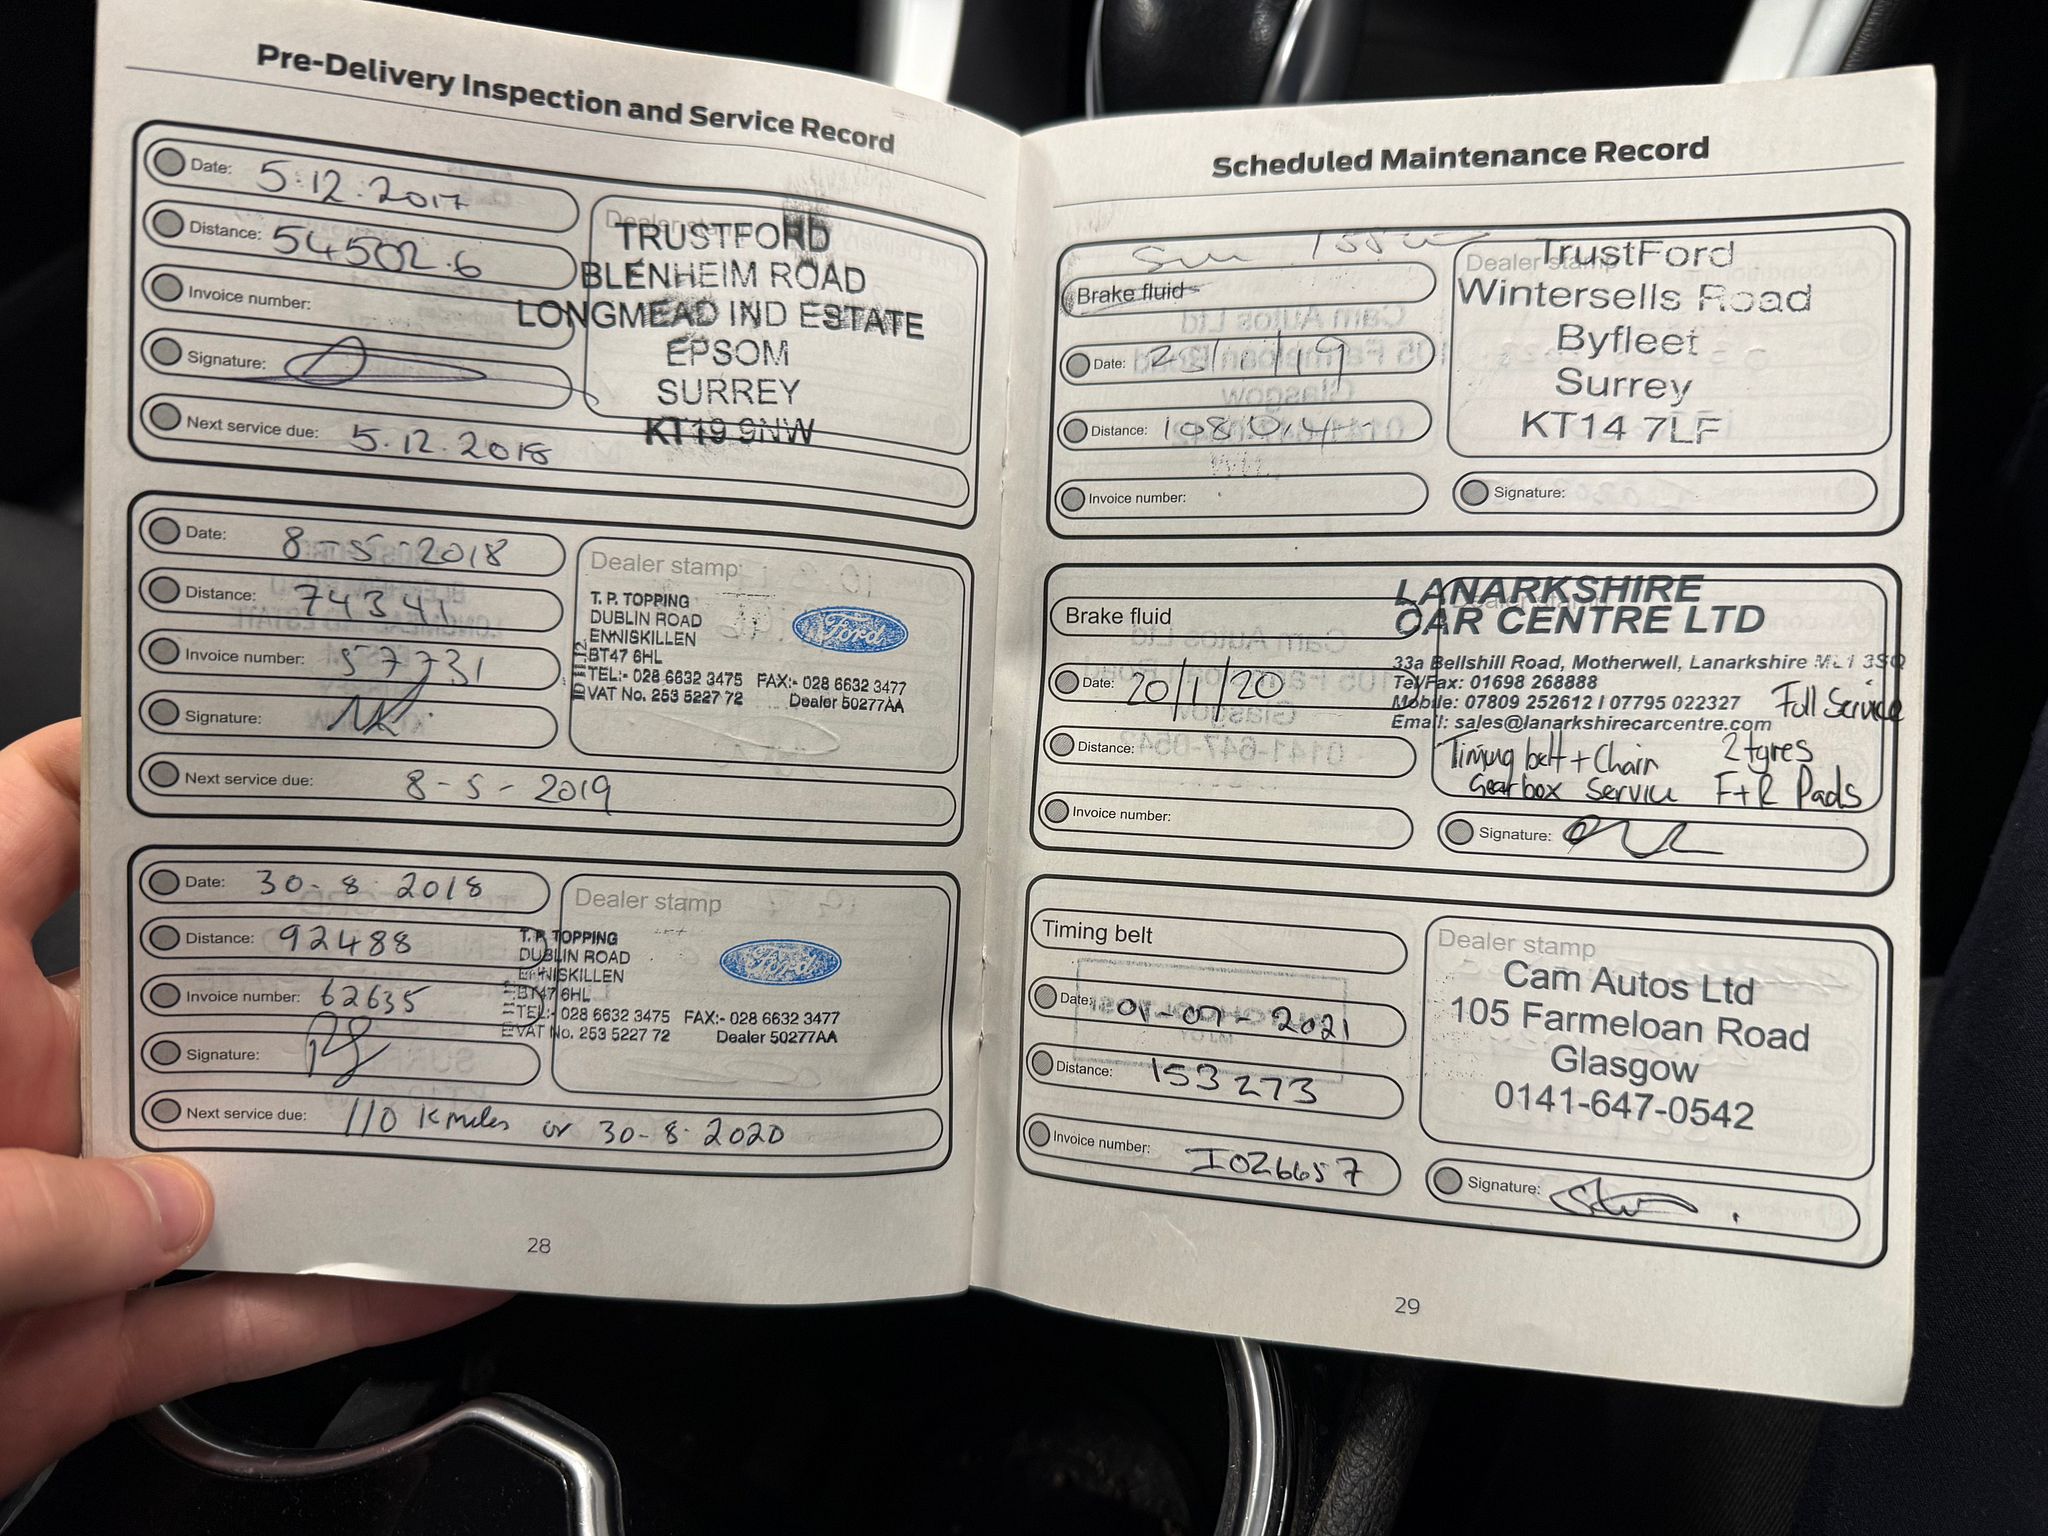 Pre-Delivery Inspection and Service Record
Date: 5.12.2017
Distance: 54502.6
Invoice number:
Signature:
Next service due: 5.12.2018
Dealer stamp
TRUSTFORD
BLENHEIM ROAD
LONGMEAD IND ESTATE
EPSOM
SURREY
KT19 9NW
Date: 8-5-2018
Distance: 74341
Invoice number: 57731
Signature:
Next service due: 8-5-2019
Dealer stamp
T. P. TOPPING
DUBLIN ROAD
ENNISKILLEN
BT47 6HL
TEL:- 028 6632 3475 FAX:- 028 6632 3477
VAT No. 253 5227 72 Dealer 50277AA
Ford
Date: 30-8-2018
Distance: 92488
Invoice number: 62635
Signature:
Next service due: 110 K miles or 30-8-2020
Dealer stamp
T. P. TOPPING
DUBLIN ROAD
ENNISKILLEN
BT47 6HL
TEL:- 028 6632 3475 FAX:- 028 6632 3477
VAT No. 253 5227 72 Dealer 50277AA
Ford
28
Scheduled Maintenance Record
Brake fluid
Date:
Distance:
Invoice number:
Dealer stamp
TrustFord
Wintersells Road
Byfleet
Surrey
KT14 7LF
Signature:
Brake fluid
Date: 20/1/20
Distance:
Invoice number:
LANARKSHIRE
CAR CENTRE LTD
33a Bellshill Road, Motherwell, Lanarkshire ML1 3SQ
Tel/Fax: 01698 268888
Mobile: 07809 252612 / 07795 022327
Email: sales@lanarkshirecarcentre.com
Full Service
Timing belt + Chain 2 tyres
Gearbox Service F+R Pads
Signature:
Timing belt
Date: 01-07-2021
Distance: 153273
Invoice number: I026657
Dealer stamp
Cam Autos Ltd
105 Farmeloan Road
Glasgow
0141-647-0542
Signature:
29